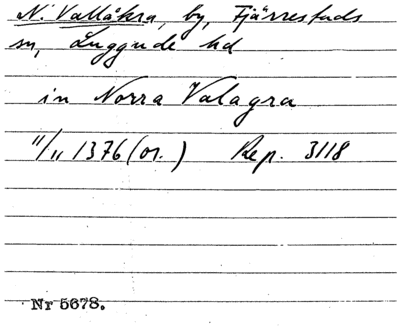 N. Vallåkra, by, Fjärrestads
sn, Luggude hd
in Norra Valagra
11/11 1376 (or.) Rep. 3118
Nr 5678.